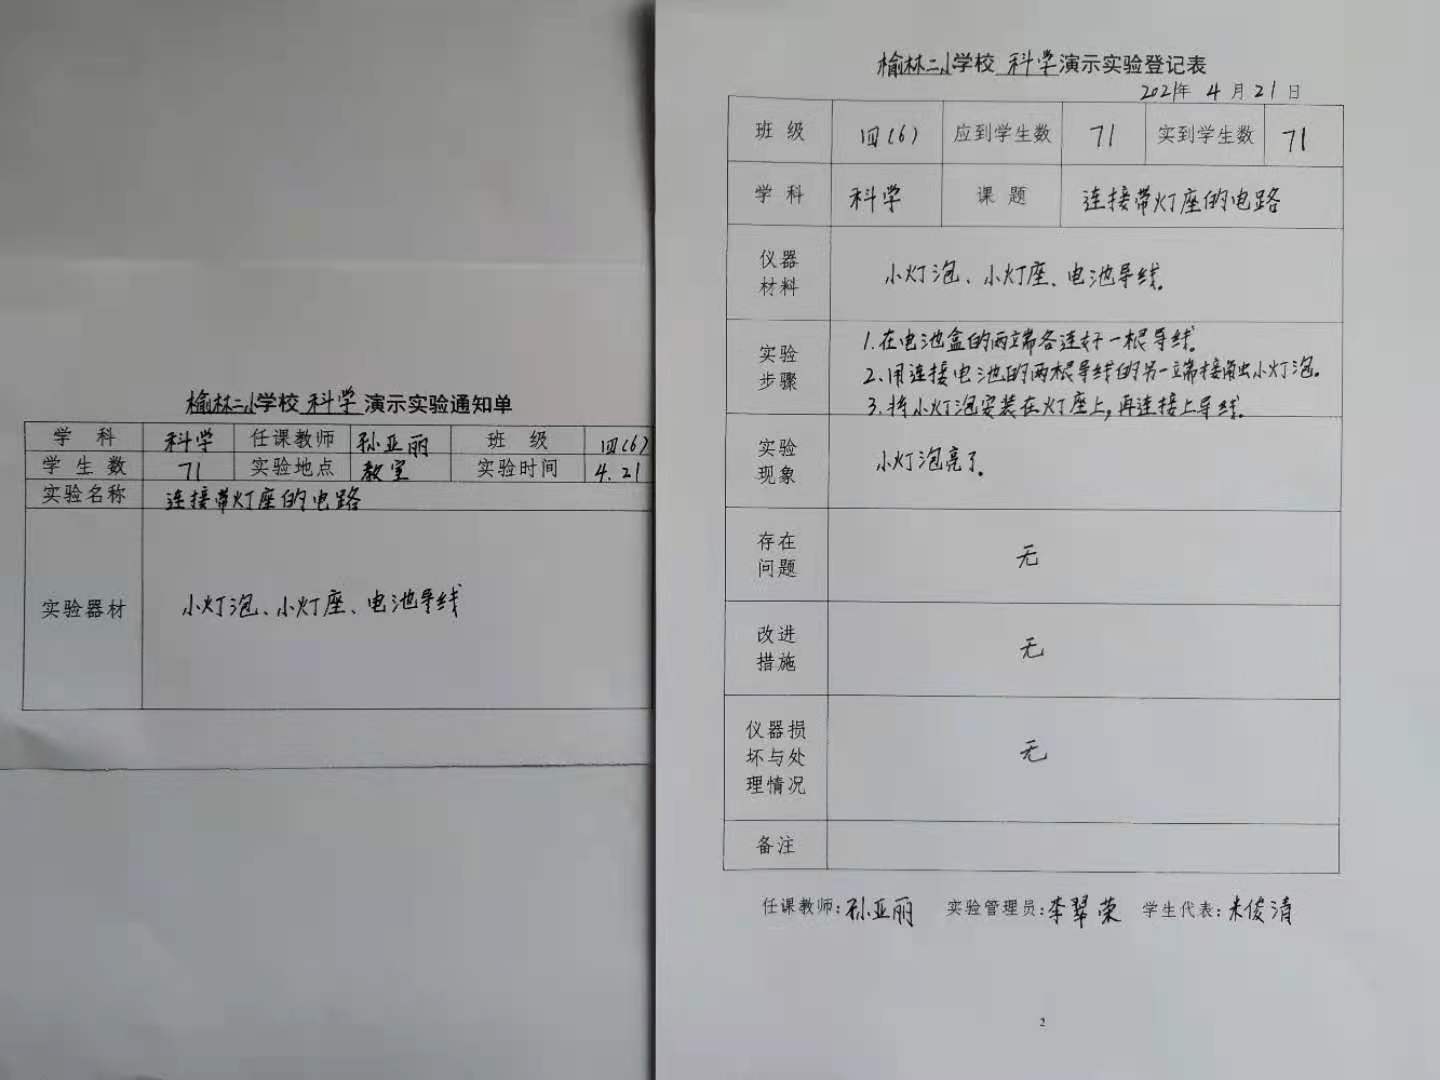 榆林二小学校 科学 演示实验通知单
学 科 科学 任课教师 孙亚丽 班 级 四(6)
学 生 数 71 实验地点 教室 实验时间 4.21
实验名称 连接带灯座的电路
实验器材 小灯泡、小灯座、电池导线
榆林二小学校 科学 演示实验登记表
2021年 4 月 21 日
班 级 四(6) 应到学生数 71 实到学生数 71
学 科 科学 课 题 连接带灯座的电路
仪器
材料
小灯泡、小灯座、电池导线。
实验
步骤
1.在电池盒的两端各连好一根导线。
2.用连接电池的两根导线的另一端接触小灯泡。
3.将小灯泡安装在灯座上,再连接上导线。
实验
现象
小灯泡亮了。
存在
问题
无
改进
措施
无
仪器损
坏与处
理情况
无
备注
任课教师:孙亚丽 实验管理员:李翠荣 学生代表:朱俊清
2